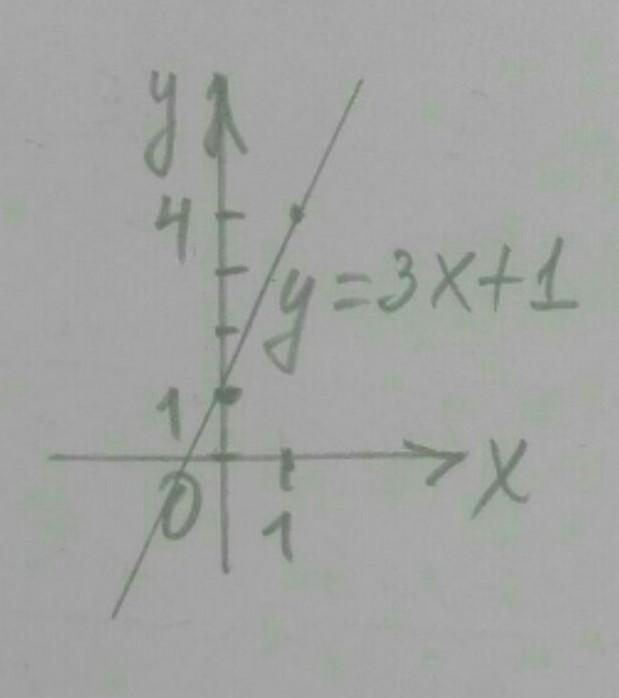 y
4
y=3x+1
1
0
1
x